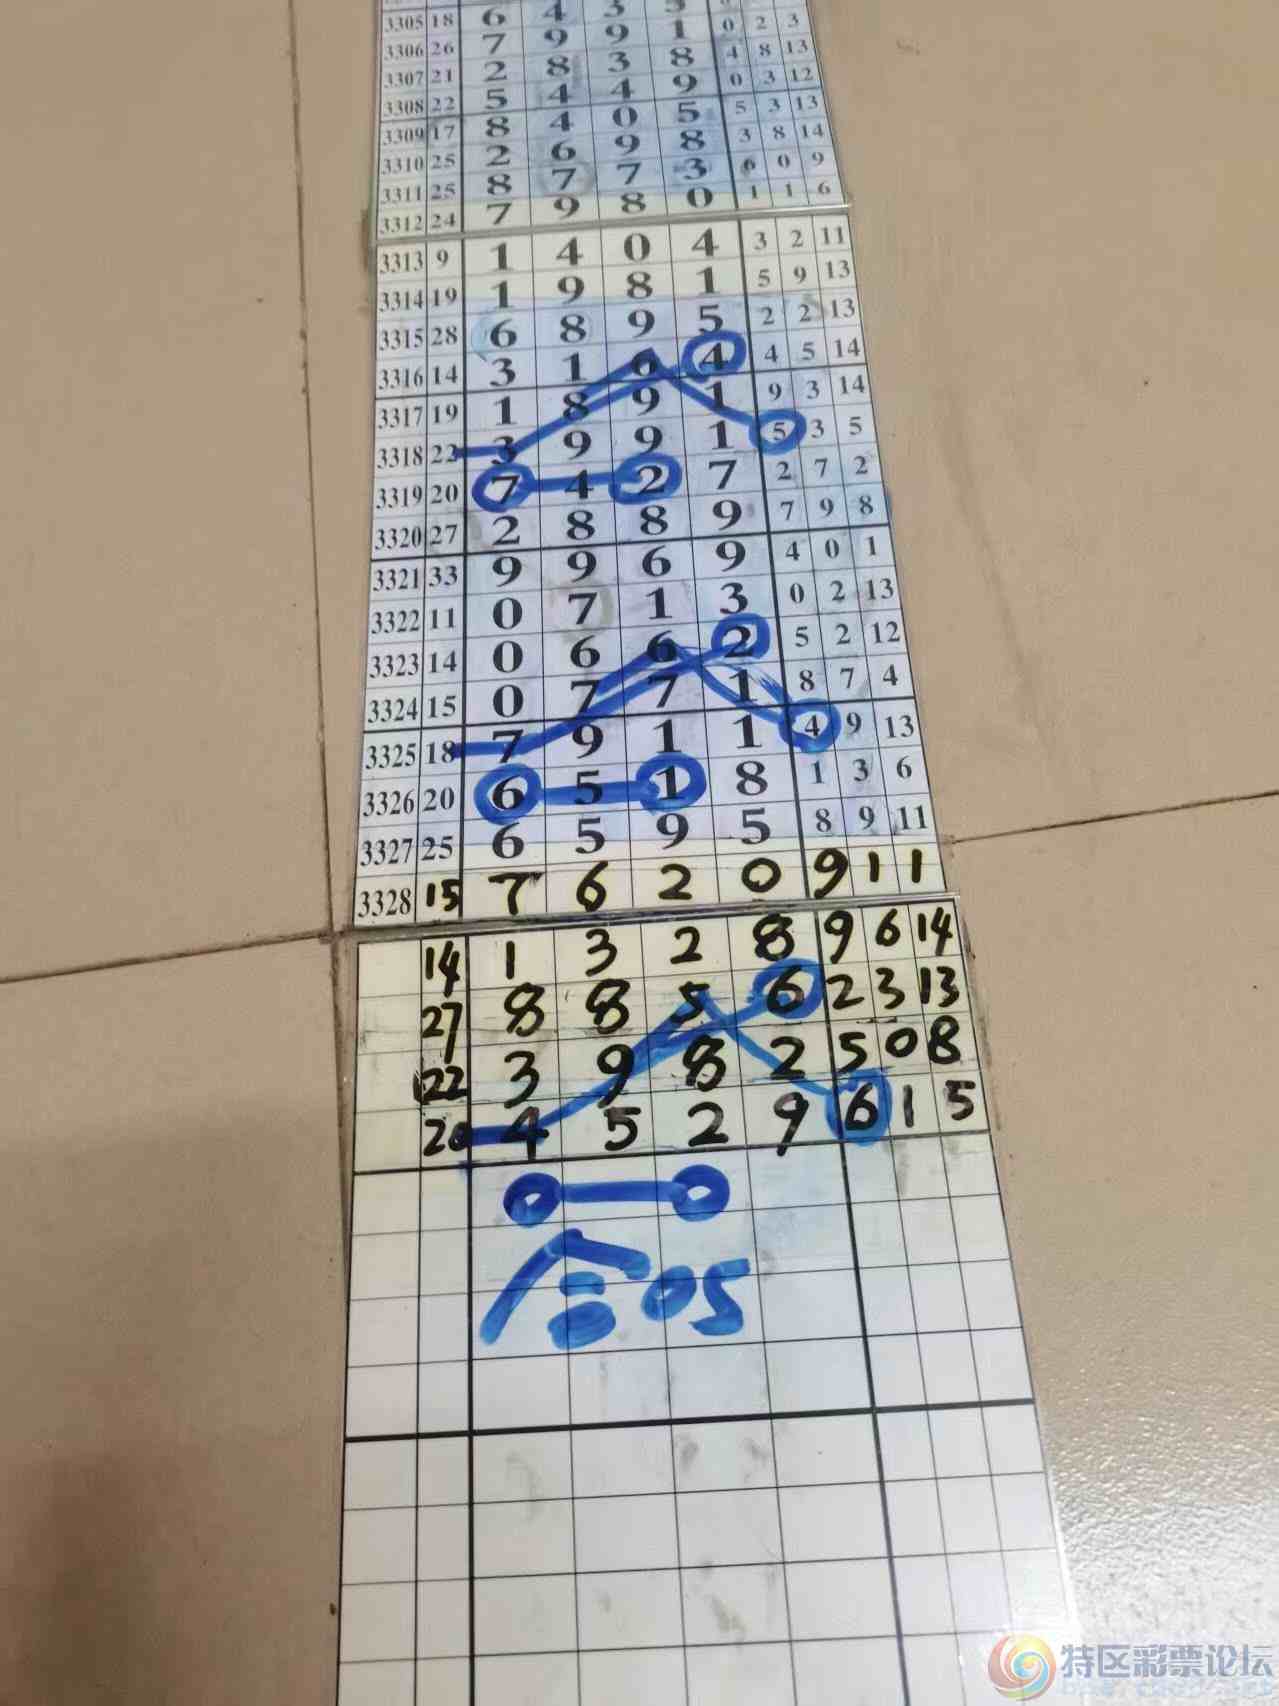 3305 18 6 4 3 5
3306 26 7 9 9 1 0 2 3
3307 21 2 8 3 8 4 8 13
3308 22 5 4 4 9 0 3 12
3309 17 8 4 0 5 5 3 13
3310 25 2 6 9 8 3 8 14
3311 25 8 7 7 3 6 0 9
3312 24 7 9 8 0 1 1 6
3313 9 1 4 0 4 3 2 11
3314 19 1 9 8 1 5 9 13
3315 28 6 8 9 5 2 2 13
3316 14 3 1 6 4 4 5 14
3317 19 1 8 9 1 9 3 14
3318 22 3 9 9 1 5 3 5
3319 20 7 4 2 7 2 7 2
3320 27 2 8 8 9 7 9 8
3321 33 9 9 6 9 4 0 1
3322 11 0 7 1 3 0 2 13
3323 14 0 6 6 2 5 2 12
3324 15 0 7 7 1 8 7 4
3325 18 7 9 1 1 4 9 13
3326 20 6 5 1 8 1 3 6
3327 25 6 5 9 5 8 9 11
3328 15 7 6 2 0 9 1 1
14 1 3 2 8 9 6 14
27 8 8 5 6 2 3 13
22 3 9 8 2 5 0 8
20 4 5 2 9 6 1 5
合 05
特区彩票论坛